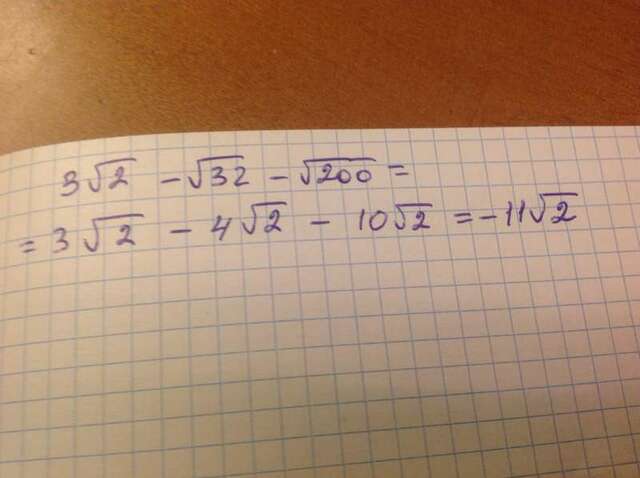 3√2 - √32 - √200 =
= 3√2 - 4√2 - 10√2 = -11√2